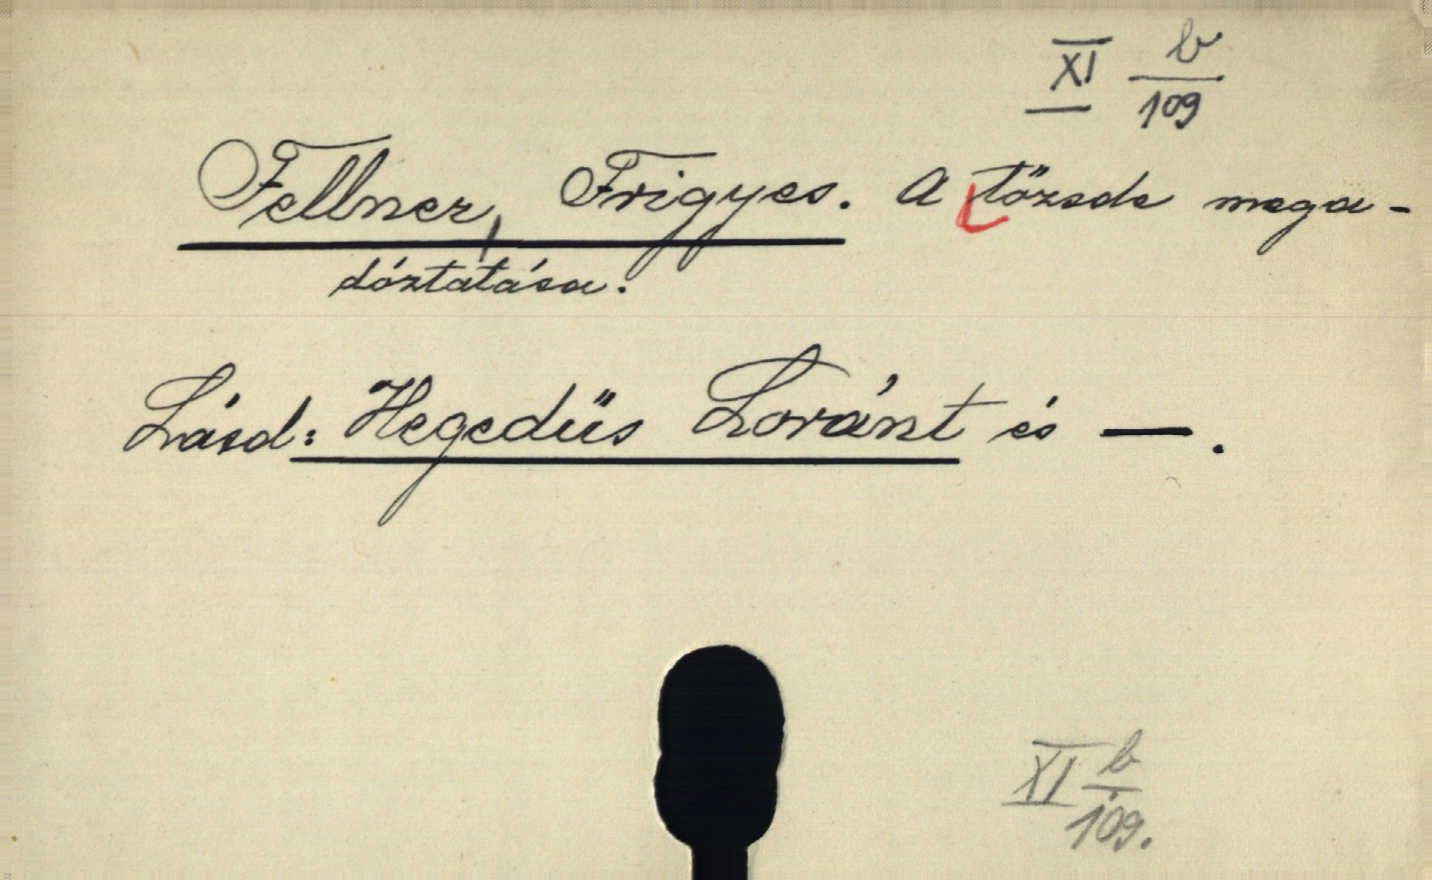 XI b/109
Fellner, Frigyes. A tőzsde mega-
dóztatása.
Lásd: Hegedüs Loránt és —.
XI b/109.